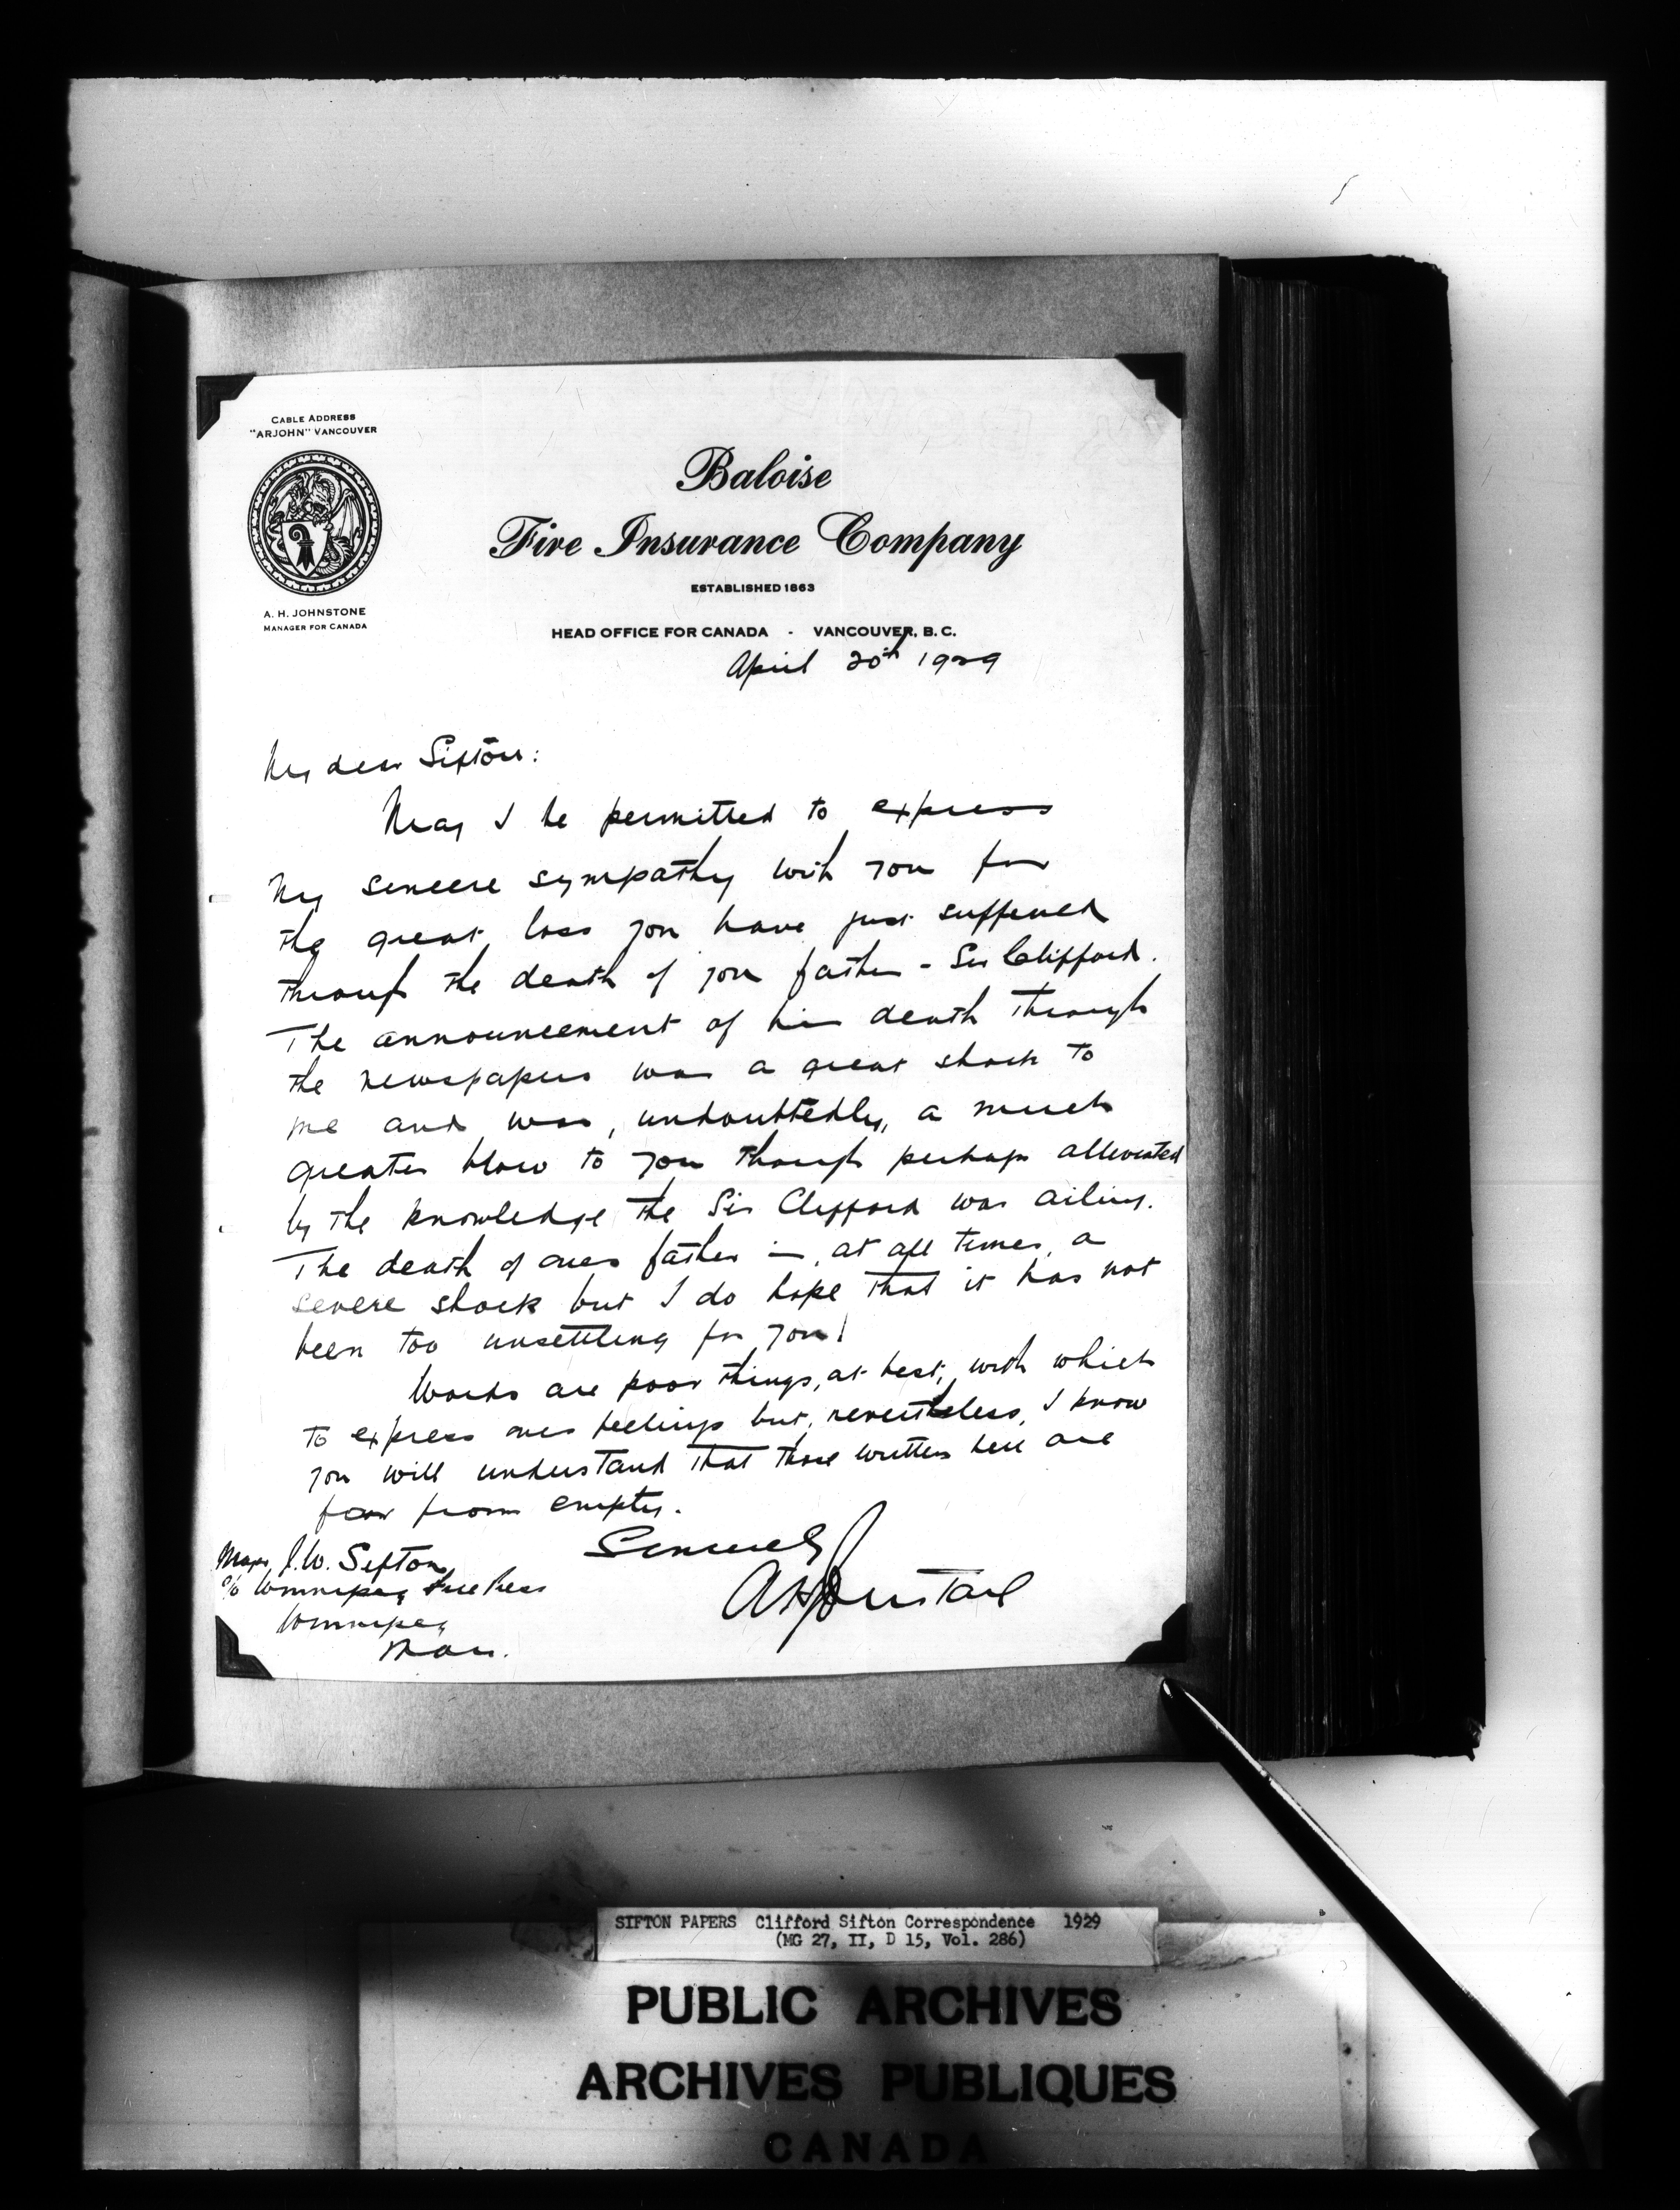 CABLE ADDRESS
"ARJOHN" VANCOUVER
A. H. JOHNSTONE
MANAGER FOR CANADA
Baloise
Fire Insurance Company
ESTABLISHED 1863
HEAD OFFICE FOR CANADA - VANCOUVER, B. C.
April 20th 1929
My dear Sifton:
May I be permitted to express
my sincere sympathy with you for
the great loss you have just suffered
through the death of your father - Sir Clifford.
The announcement of his death through
the newspapers was a great shock to
me and was, undoubtedly, a much
greater blow to you though perhaps alleviated
by the knowledge the Sir Clifford was ailing.
The death of ones father is, at all times, a
severe shock but I do hope that it has not
been too unsettling for you!
Words are poor things, at best, with which
to express ones feelings but, nevertheless, I know
you will understand that those written here are
far from empty.
Sincerely
AHJohnstone
Major J.W. Sifton
c/o Winnipeg Free Press
Winnipeg
Man.
SIFTON PAPERS Clifford Sifton Correspondence 1929
(MG 27, II, D 15, Vol. 286)
PUBLIC ARCHIVES
ARCHIVES PUBLIQUES
CANADA